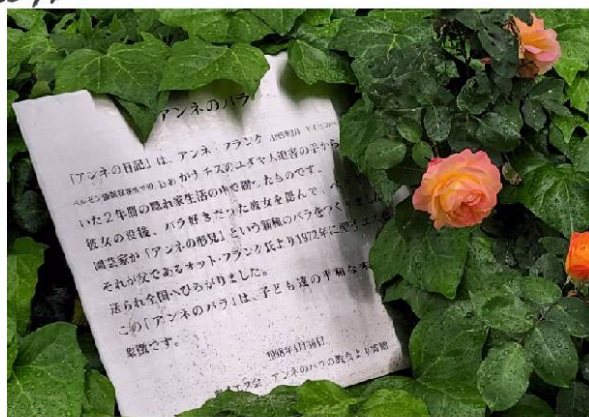 アンネのバラ
「アンネの日記」は、アンネ・フランク
がナチスのユダヤ人迫害の手から
いた2年間の隠れ家生活の中で綴ったものです。
彼女の没後、バラ好きだった彼女を悼んで、
園芸家が「アンネの形見」という新種のバラをつくりました
それが父であるオットー・フランク氏より1972年に
送られ全国へひろがりました。
この「アンネのバラ」は、子ども達の平和な未
象徴です。
アンネのバラの教会より寄贈